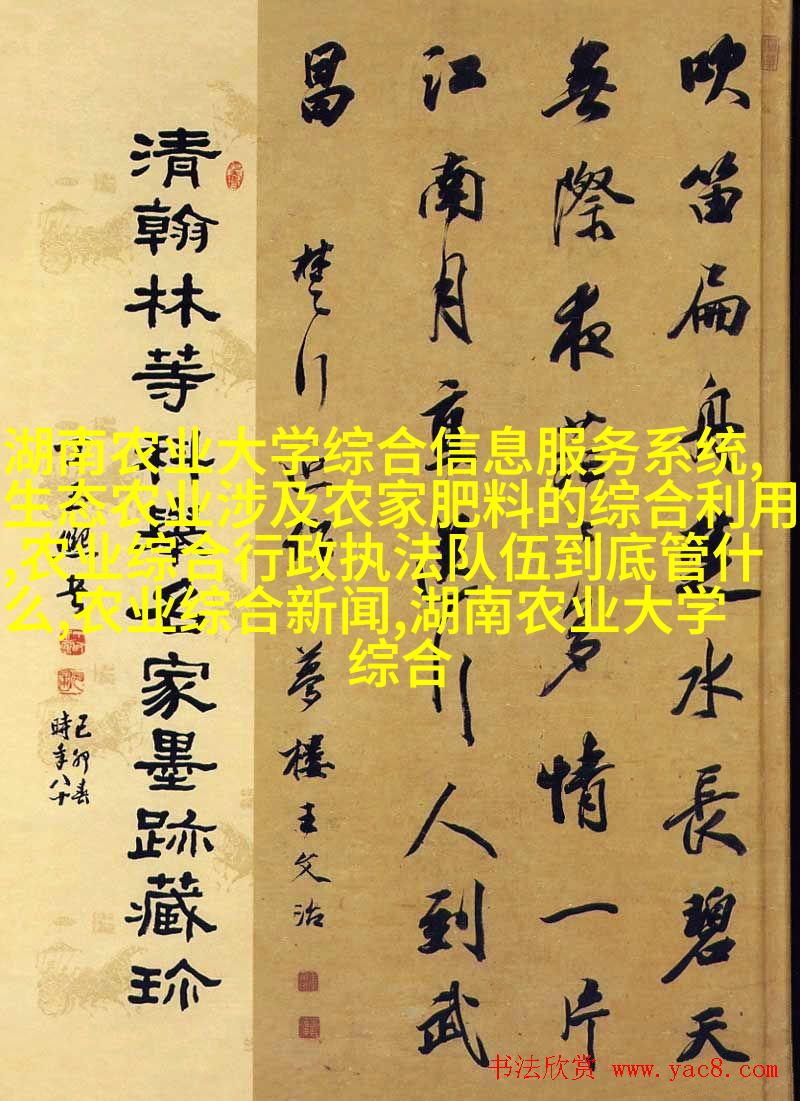 吹笛扁舟水長碧天
無際夜茫多情一片
江南月行人到武
昌
楚行 夢樓王文治
清翰林等科舉名家墨跡藏珍
熙書
己卯春
時年八十
湖南农业大学综合信息服务系统,
生态农业涉及农家肥料的综合利用
,农业综合行政执法队伍到底管什
么,农业综合新闻,湖南农业大学
综合
书法欣赏 www.yac8.com